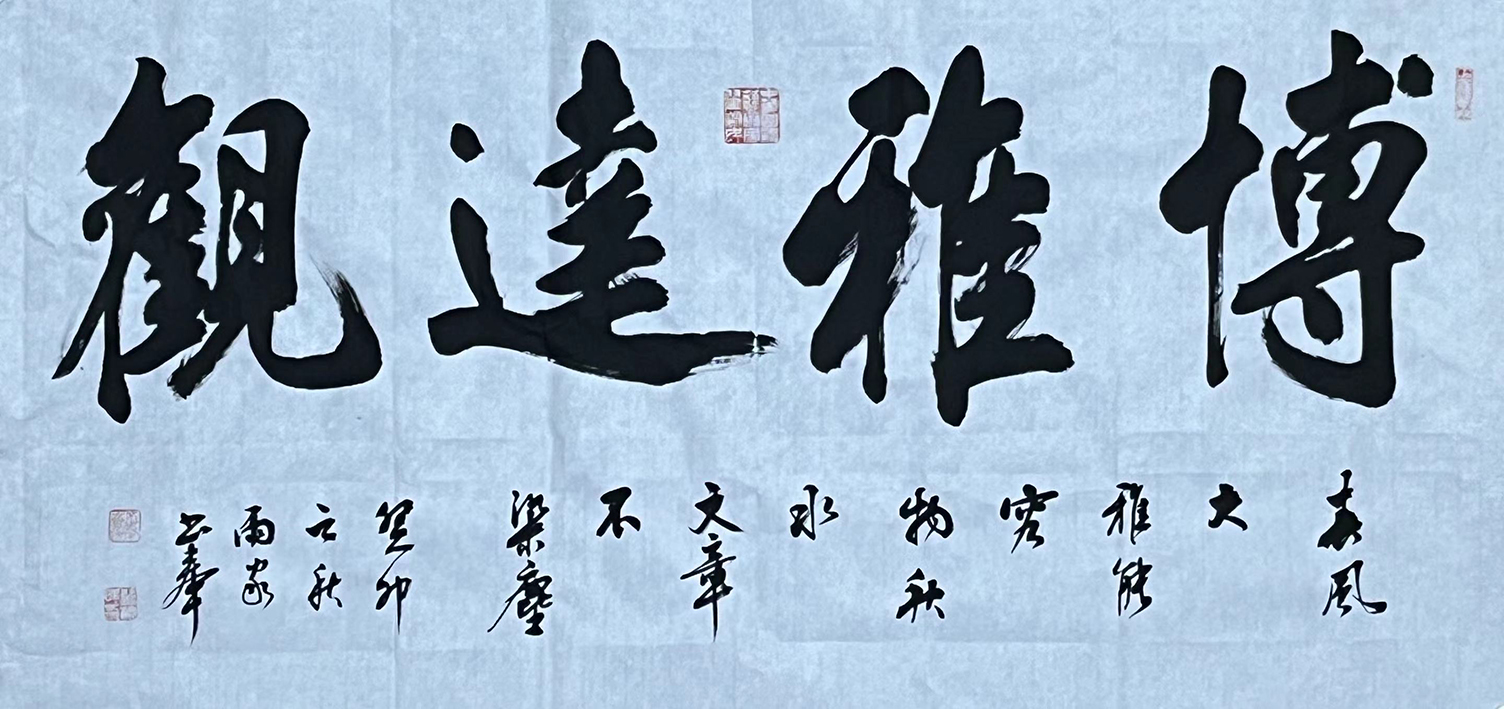 博雅達觀
春風
大
雅能
容
物秋
水
文章
不
染塵
癸卯
之秋
雨家
书奉